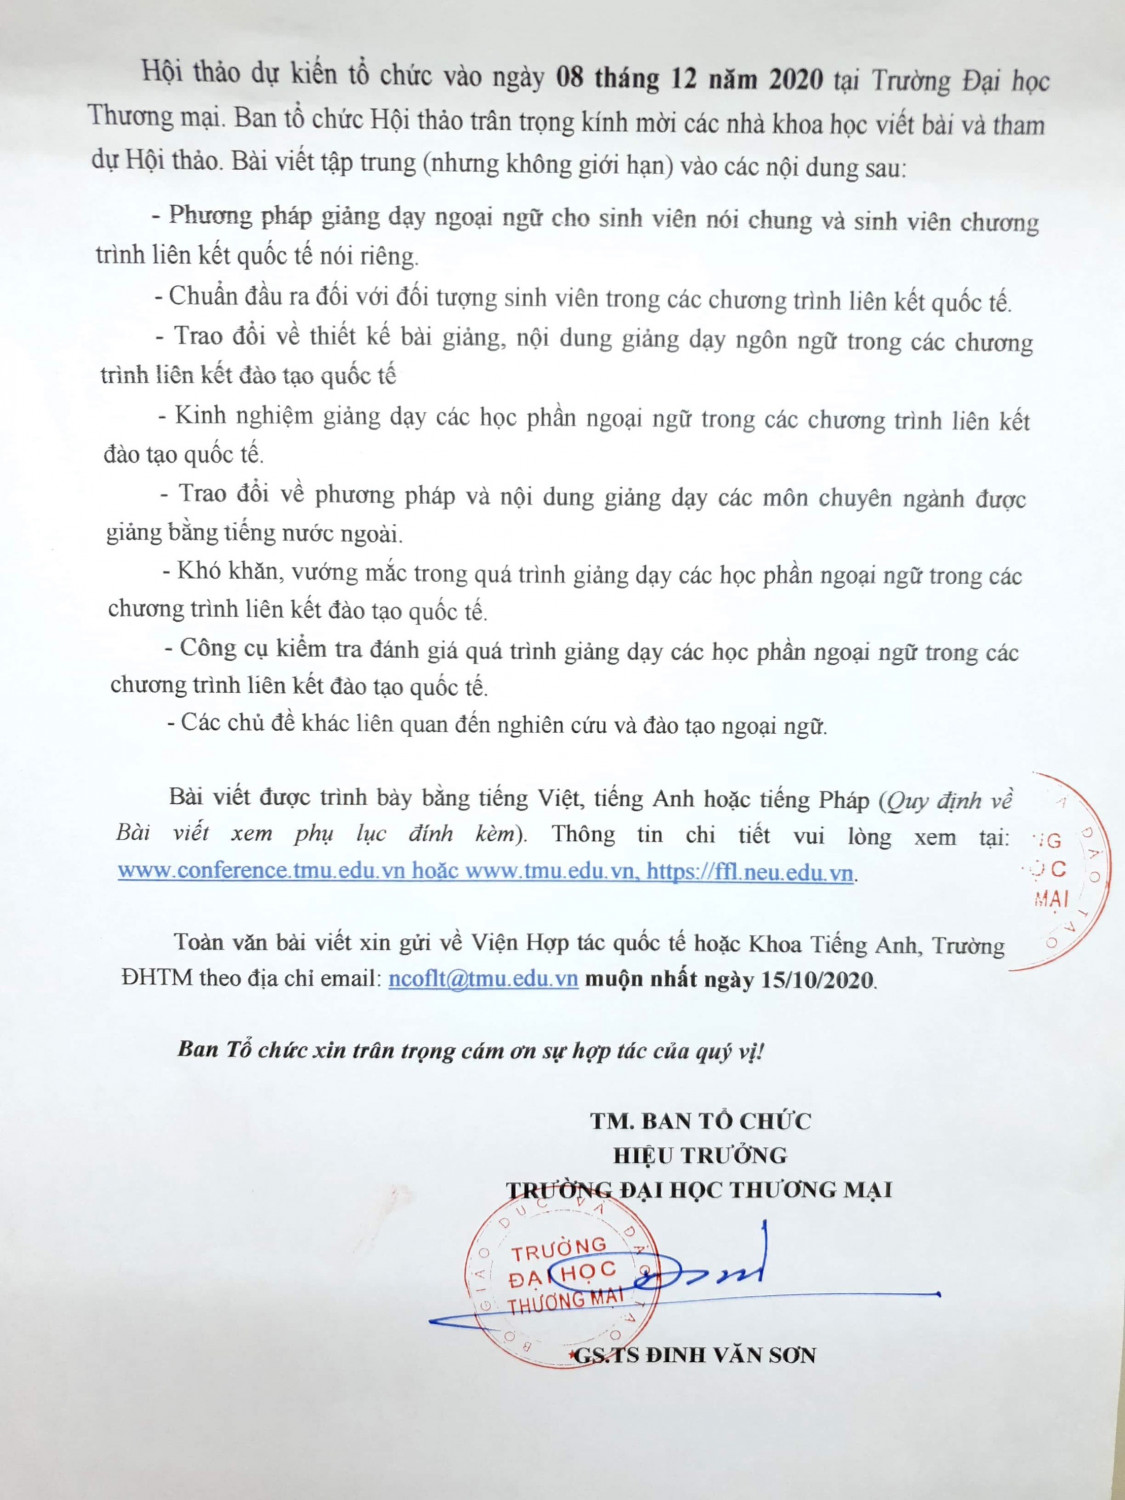 Hội thảo dự kiến tổ chức vào ngày 08 tháng 12 năm 2020 tại Trường Đại học
Thương mại. Ban tổ chức Hội thảo trân trọng kính mời các nhà khoa học viết bài và tham
dự Hội thảo. Bài viết tập trung (nhưng không giới hạn) vào các nội dung sau:
- Phương pháp giảng dạy ngoại ngữ cho sinh viên nói chung và sinh viên chương
trình liên kết quốc tế nói riêng.
- Chuẩn đầu ra đối với đối tượng sinh viên trong các chương trình liên kết quốc tế.
- Trao đổi về thiết kế bài giảng, nội dung giảng dạy ngôn ngữ trong các chương
trình liên kết đào tạo quốc tế
- Kinh nghiệm giảng dạy các học phần ngoại ngữ trong các chương trình liên kết
đào tạo quốc tế.
- Trao đổi về phương pháp và nội dung giảng dạy các môn chuyên ngành được
giảng bằng tiếng nước ngoài.
- Khó khăn, vướng mắc trong quá trình giảng dạy các học phần ngoại ngữ trong các
chương trình liên kết đào tạo quốc tế.
- Công cụ kiểm tra đánh giá quá trình giảng dạy các học phần ngoại ngữ trong các
chương trình liên kết đào tạo quốc tế.
- Các chủ đề khác liên quan đến nghiên cứu và đào tạo ngoại ngữ.
Bài viết được trình bày bằng tiếng Việt, tiếng Anh hoặc tiếng Pháp (Quy định về
Bài viết xem phụ lục đính kèm). Thông tin chi tiết vui lòng xem tại:
www.conference.tmu.edu.vn hoặc www.tmu.edu.vn, https://ffl.neu.edu.vn.
Toàn văn bài viết xin gửi về Viện Hợp tác quốc tế hoặc Khoa Tiếng Anh, Trường
ĐHTM theo địa chỉ email: ncoflt@tmu.edu.vn muộn nhất ngày 15/10/2020.
Ban Tổ chức xin trân trọng cám ơn sự hợp tác của quý vị!
TM. BAN TỔ CHỨC
HIỆU TRƯỞNG
TRƯỜNG ĐẠI HỌC THƯƠNG MẠI
BỘ GIÁO DỤC VÀ ĐÀO TẠO
TRƯỜNG
ĐẠI HỌC
THƯƠNG MẠI
GS.TS ĐINH VĂN SƠN
ĐÀO TẠO
MẠI